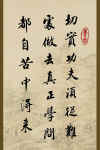 切實功夫須從難
處做去真正學問
都自苦中得來